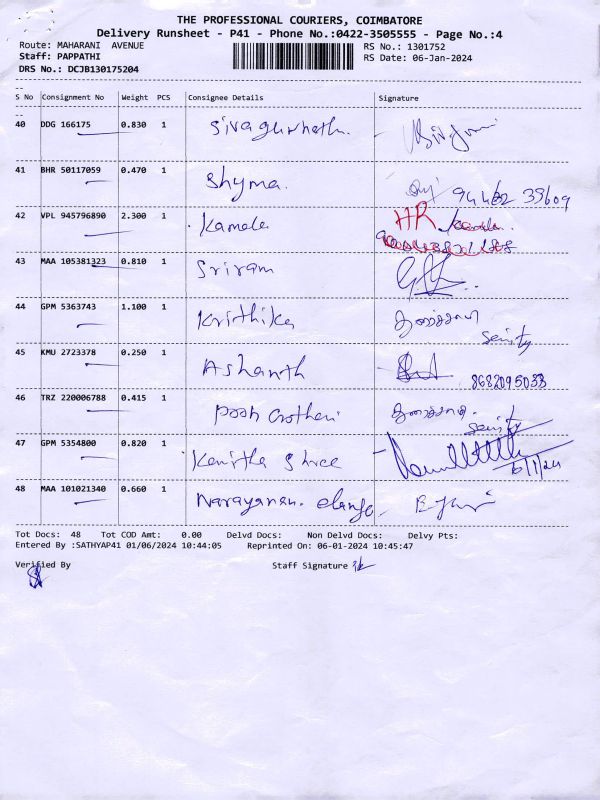 THE PROFESSIONAL COURIERS, COIMBATORE
Delivery Runsheet - P41 - Phone No.:0422-3505555 - Page No.:4
Route: MAHARANI AVENUE
RS No.: 1301752
Staff: PAPPATHI
RS Date: 06-Jan-2024
DRS No.: DCJB130175204
S No Consignment No Weight PCS Consignee Details Signature
40 DDG 166175 0.830 1
41 BHR 50117059 0.470 1 Shyma.
42 VPL 945796890 2.300 1 Kamala HR
43 MAA 105381323 0.810 1 Sriram
44 GPM 5363743 1.100 1 Krithika
45 KMU 2723378 0.250 1 Ashanth 8682095033
46 TRZ 220006788 0.415 1
47 GPM 5354800 0.820 1 Shree 6/1/24
48 MAA 101021340 0.660 1 Narayanan.
Tot Docs: 48 Tot COD Amt: 0.00 Delvd Docs: Non Delvd Docs: Delvy Pts:
Entered By :SATHYAP41 01/06/2024 10:44:05 Reprinted On: 06-01-2024 10:45:47
Verified By Staff Signature